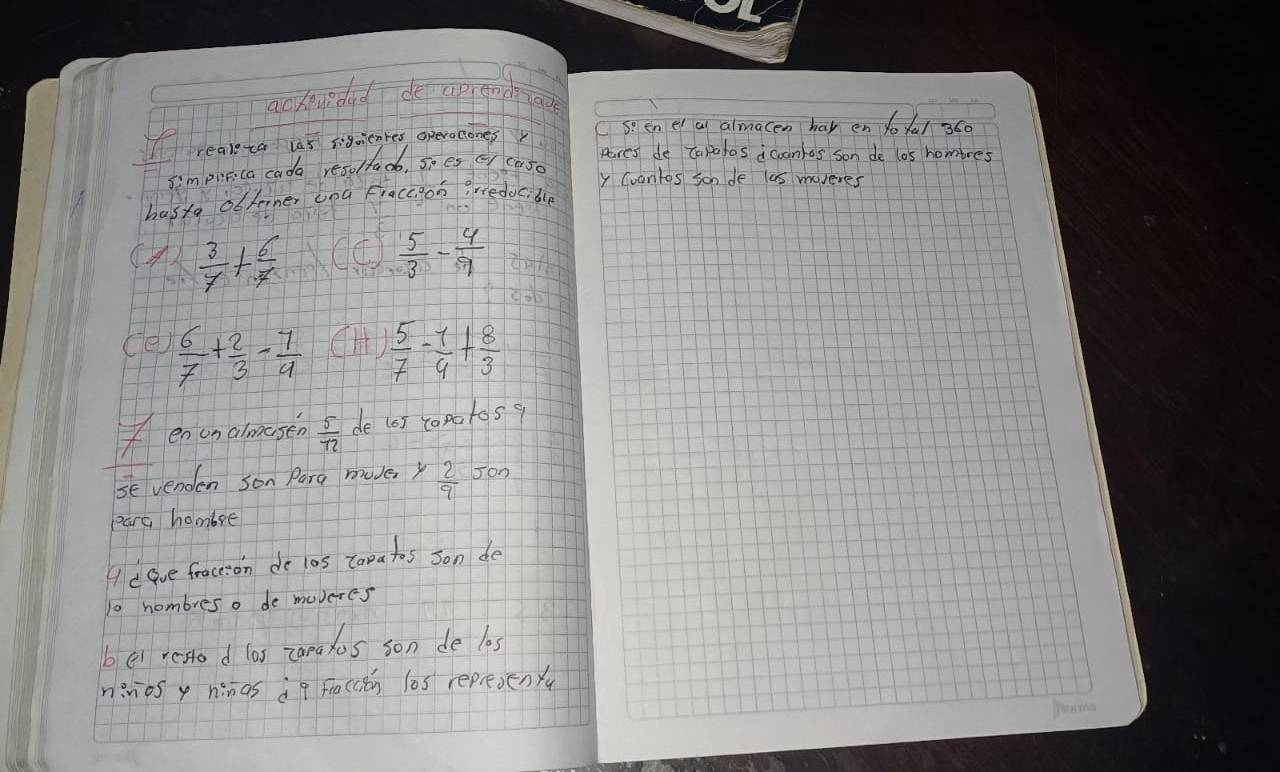 OL
actividad de aprendizaje
1 realiza las siguientes operaciones y
simplifica cada resultado, si es el caso
hasta obtener una Fracción irreducible
(A) 3/7 + 6/7 (C) 5/3 - 4/9
(e) 6/7 + 2/3 - 1/9 (H) 5/7 - 1/4 + 8/3
7 en un almasén 5/12 de los zapatos q
se venden son para mujer y 2/9 son
para hombre
a ¿Que fraccion de los zapatos son de
lo hombres o de mujeres
b el resto d los zapatos son de los
niños y niñas ¿ q fracción los representa
C Si en el al almacen hay en total 360
pares de zapatos ¿cuantos son de los hombres
y cuantos son de las mujeres
Norma